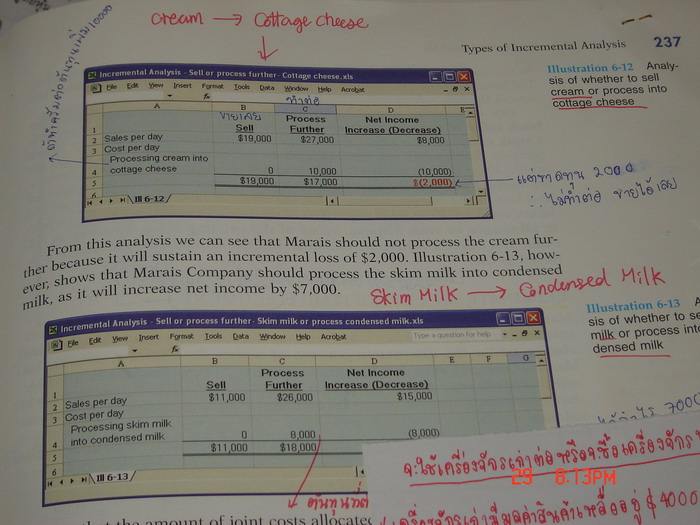 cream → Cottage cheese
Types of Incremental Analysis 237
Illustration 6-12 Analy-
sis of whether to sell
cream or process into
cottage cheese
Incremental Analysis - Sell or process further- Cottage cheese.xls
File Edit View Insert Format Tools Data Window Help Acrobat
A B C D E
ขายเลย ทำต่อ
Process Net Income
1 Sell Further Increase (Decrease)
2 Sales per day $19,000 $27,000 $8,000
3 Cost per day
Processing cream into
4 cottage cheese 0 10,000 (10,000)
5 $19,000 $17,000 $(2,000)
6
Ill 6-12
แต่ขาดทุน 2000
∴ ไม่ทำต่อ ขายได้เลย
From this analysis we can see that Marais should not process the cream fur-
ther because it will sustain an incremental loss of $2,000. Illustration 6-13, how-
ever, shows that Marais Company should process the skim milk into condensed
milk, as it will increase net income by $7,000.
Skim Milk → Condensed Milk
Illustration 6-13
sis of whether to se
milk or process int
densed milk
Incremental Analysis - Sell or process further- Skim milk or process condensed milk.xls
File Edit View Insert Format Tools Data Window Help Acrobat Type a question for help
A B C D E F G
Process Net Income
1 Sell Further Increase (Decrease)
2 Sales per day $11,000 $26,000 $15,000
3 Cost per day
Processing skim milk
4 into condensed milk 0 8,000 (8,000)
5 $11,000 $18,000
6
Ill 6-13
7000
จะใช้เครื่องจักรเก่าต่อ หรือจะซื้อเครื่องจักร
29 8:13PM
เครื่องจักรเก่ามีมูลค่าสินค้าเหลืออยู่ $4000
the amount of joint costs allocated